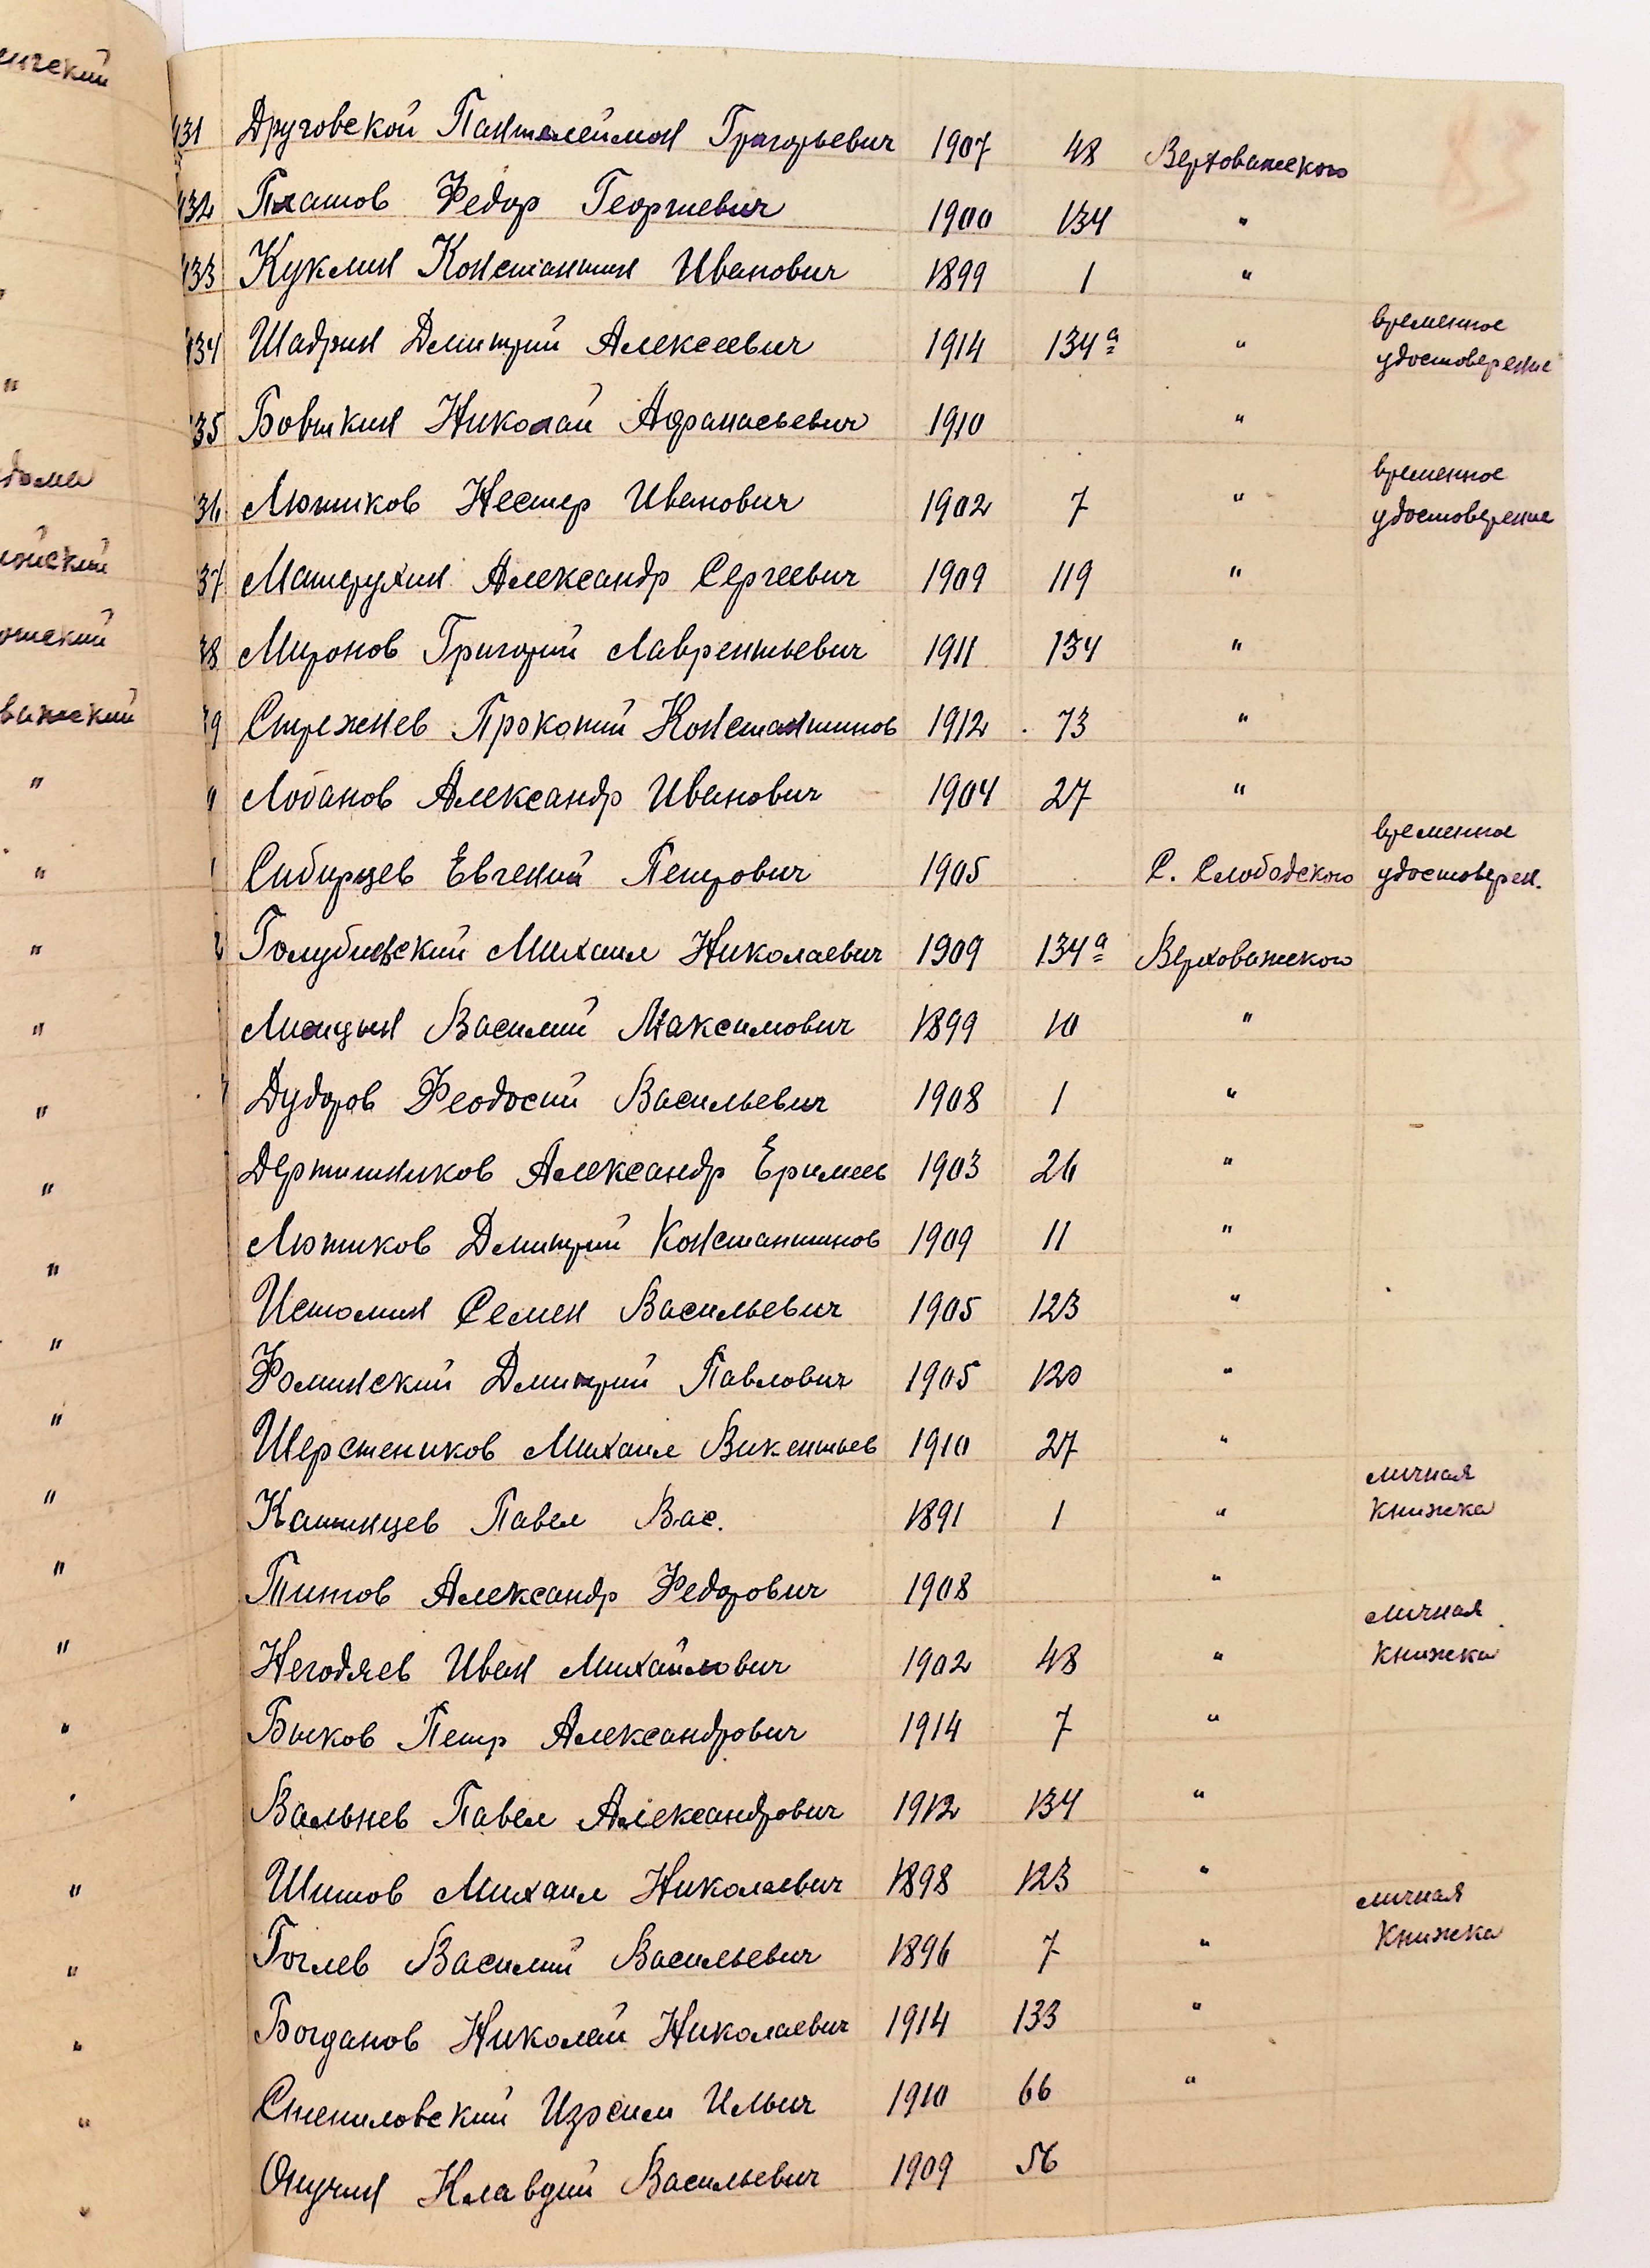 431 Друговской Пантелеймон Григорьевич 1907 48 Верховажского
432 Пхатов Федор Георгиевич 1900 134 "
433 Куклин Константин Иванович 1899 1 "
временное
434 Шадрин Дмитрий Алексеевич 1914 134а " удостоверение
35 Бовыкин Николай Афанасьевич 1910 "
временное
36 Лютиков Нестер Иванович 1902 7 " удостоверение
37 Матерухин Александр Сергеевич 1909 119 "
38 Миронов Григорий Лаврентьевич 1911 134 "
39 Стрежнев Прокопий Константинов 1912 73 "
Лобанов Александр Иванович 1904 27 "
временное
Сибирцев Евгений Петрович 1905 С. Слободского удостоверен.
Голубинский Михаил Николаевич 1909 134а Верховажского
Василий Максимович 1899 10 "
Дудоров Феодосий Васильевич 1908 1 "
Александр 1903 26 "
Лютиков Дмитрий Константинов 1909 11 "
Истомин Семен Васильевич 1905 123 "
Фоминский Дмитрий Павлович 1905 120 "
Шерстеников Михаил Викентьев 1910 27 "
личная
Каминцев Павел Вас. 1891 1 " книжка
Титов Александр Федорович 1908 "
личная
Негодяев Иван Михайлович 1902 48 " книжка
Быков Петр Александрович 1914 7 "
Вальнев Павел Александрович 1912 134 "
Шитов Михаил Николаевич 1898 123 "
личная
Гоглев Василий Васильевич 1896 7 " книжка
Богданов Николай Николаевич 1914 133 "
Ильич 1910 66 "
Онучин Клавдий Васильевич 1909 56